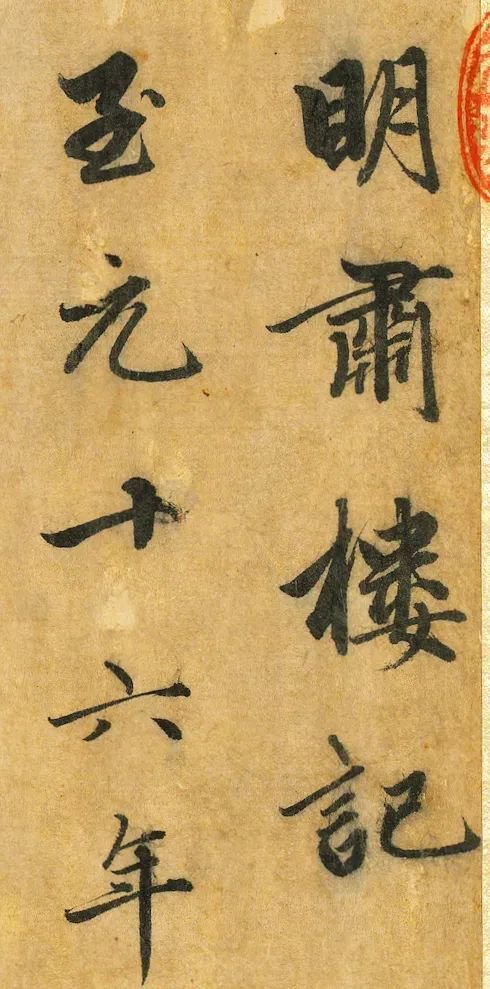 明肅樓記
至元十六年